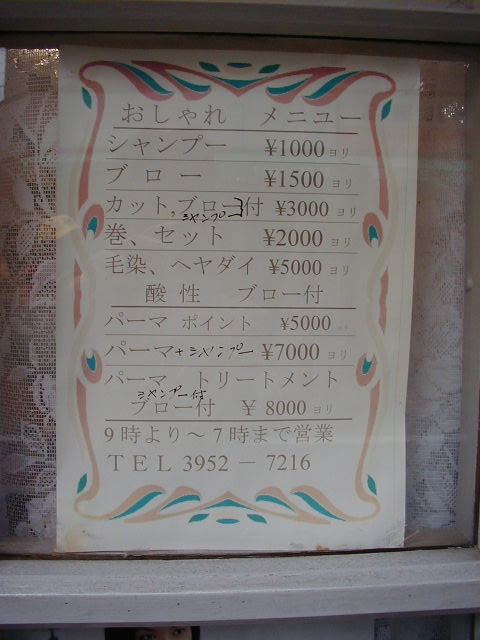 おしゃれ メニュー
シャンプー ¥1000ヨリ
ブロー ¥1500ヨリ
カット,ブロー付 ¥3000ヨリ
シャンプー
巻、セット ¥2000ヨリ
毛染、ヘヤダイ ¥5000ヨリ
酸性 ブロー付
パーマ ポイント ¥5000
パーマ+シャンプー ¥7000ヨリ
パーマ トリートメント
シャンプー付
ブロー付 ¥8000ヨリ
9時より〜7時まで営業
TEL 3952-7216